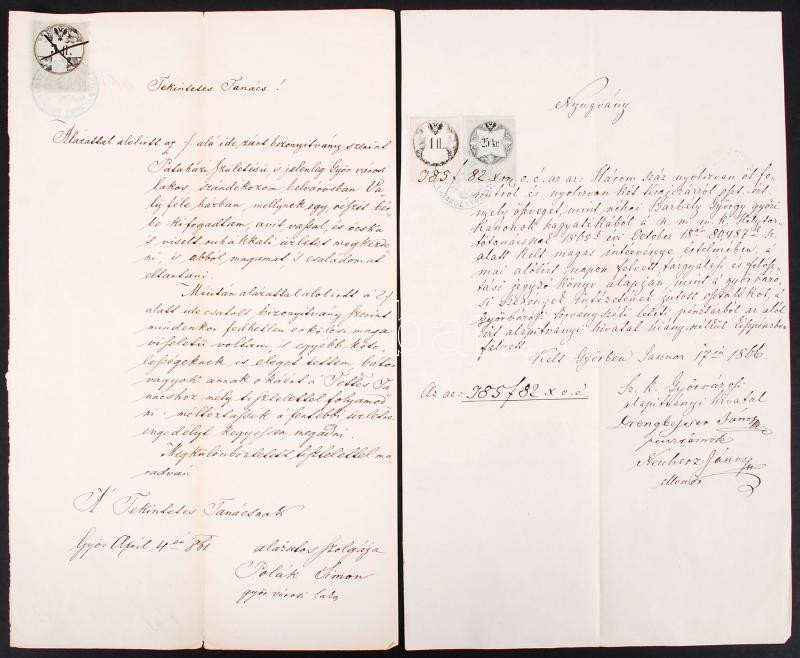 Tekintetes Tanács!
Alázattal alolirott az ./. alá ide zárt bizonyitvány szerint
Pátaházi születésü is jelenleg Győr városi
lakos, szándékozom belvárosban
házban, mellynek egy részét bér-
be kifogadtam, avit vassal, és ócska
's viselt ruhákkali üzletet megkezde-
ni, is abból magamat 's családomat
eltartani.
Miután alázattal alolirott a 2/.
alatt ide csatolt bizonyitvány szerint
mindenkor fedhetlen erkölcsi maga
viseletü voltam, is egyébb köte-
lességeknek is eleget tettem bátor
vagyok annak okáért a Tettes Ta-
nácshoz mely tisztelettel folyamod-
ni méltóztassék a fentebbi üzletre
engedélyt kegyessen megadni.
Megkülönböztetett tisztelettel ma-
radván
A Tekintetes Tanácsnak
Győr April 4én 861
alázatos szolgája
Polák Simon
győr városi lakos
Nyugvány
1 fl.
25 kr.
385 f 82 x o. é. az az: Három száz nyolczvan öt fo-
rintról és nyolczvan két krajczárról
mely összeget, mint néhai Barbély György győri
kanonok hagyatékából a n. m. m. k. Helytar-
tótanácsnak 1865. évi October 18án 80,987 sz.
alatt kelt magas intézvénye értelmében, a
mai alólirt napon felvett tárgyalási és felosz-
tási jegyző könyv alapján, mint a győrváro-
si szegények intézetének jutott osztalékot, a
győrvárosi törvényszéki letéti pénztárból az alól
irt alapitványi hivatal hiány nélkül készpénzben
felvett.
Kelt Győrben Januar 17én 1866.
Az az: 385 f 82 x o. é.
Sz. k. Győrvárosi
alapitványi hivatal
János
pénztárnok
Neuherz János
ellenőr